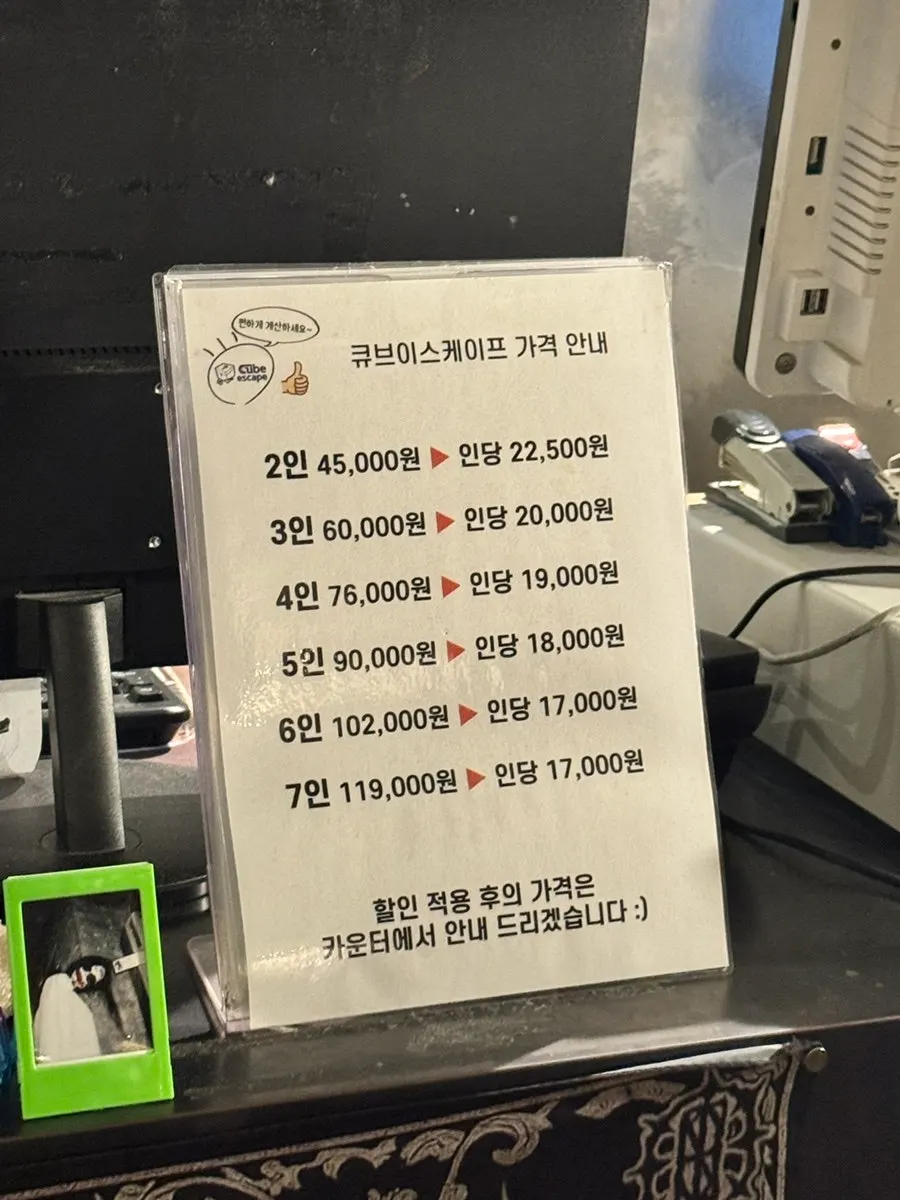 편하게 계산하세요~
Cube
escape
큐브이스케이프 가격 안내
2인 45,000원 ▶ 인당 22,500원
3인 60,000원 ▶ 인당 20,000원
4인 76,000원 ▶ 인당 19,000원
5인 90,000원 ▶ 인당 18,000원
6인 102,000원 ▶ 인당 17,000원
7인 119,000원 ▶ 인당 17,000원
할인 적용 후의 가격은
카운터에서 안내 드리겠습니다 :)